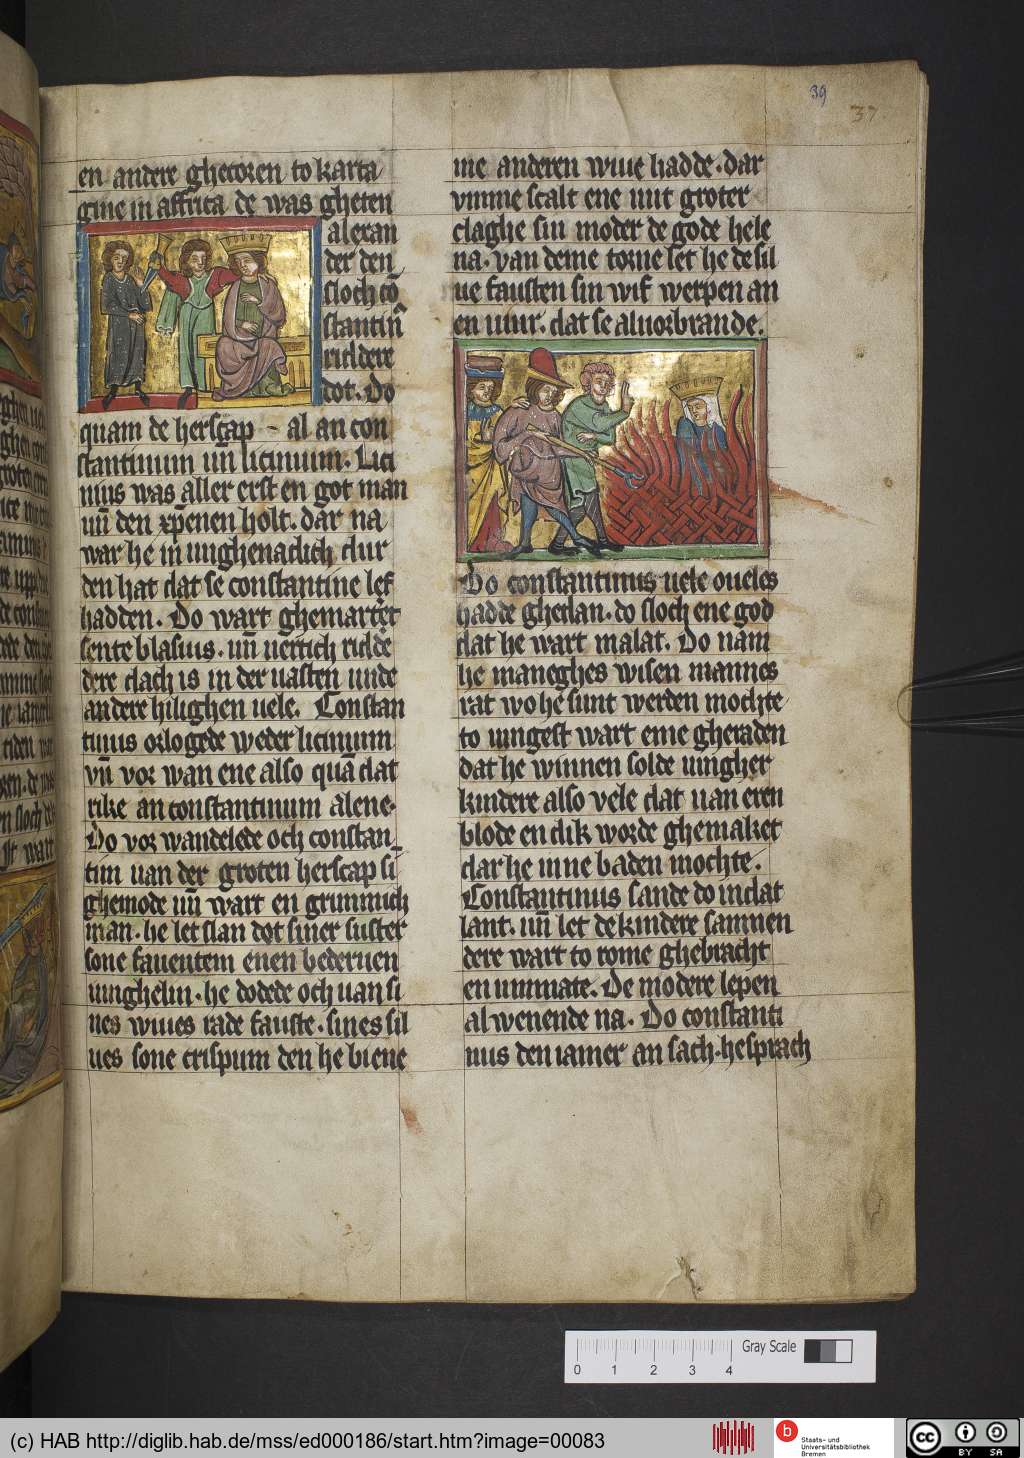 39
37
en andere ghecoren to karta
gine in affrica de was gheten
alexan
der den
sloch cō
stantin̄
riddere
dot. Do
quam de herscap al an con
stantinum uñ licinium. Lici
nius was aller erst en got man
uñ den xp̄enen holt. dar na
war he in unghenadich dur
den hat dat se constantine lef
hadden. Do wart ghemarteret
sente blasius. uñ uertich ridde
dere dach is in der uasten unde
andere hilighen uele. Constan
tinus orlogede weder licinium
vñ vor wan ene also quā dat
rike an constantinum alene.
Do vor wandelede och constan
tin uan der groten herscap si
ghemode uñ wart en grimmich
man. he let slan dot siner suster
sone fauentem enen bederuen
iunghelin. he dodede och uan si
nes wiues rade fauste. sines sil
ues sone crispum den he biene
me anderen wiue hadde. dar
umme scalt ene mit groter
claghe sin moder de gode hele
na. van deme torne let he de sil
ue fausten sin wif werpen an
en uiur. dat se aluorbrande.
Do constantinus uele oueles
hadde ghedan. do sloch ene god
dat he wart malat. Do nam
he maneghes wisen mannes
rat wo he sunt werden mochte
to iungest wart eme gheraden
dat he winnen solde uingher
kindere also vele dat uan eren
blode en dik worde ghemaket
dar he inne baden mochte.
Constantinus sande do in dat
lant. uñ let de kindere samnen
dere wart to rome ghebracht
en unmate. De modere lepen
al wenende na. Do constanti
nus den iamer an sach. he sprach
0 1 2 3 4
Gray Scale
(c) HAB http://diglib.hab.de/mss/ed000186/start.htm?image=00083
b
Staats- und
Universitätsbibliothek
Bremen
cc
BY SA